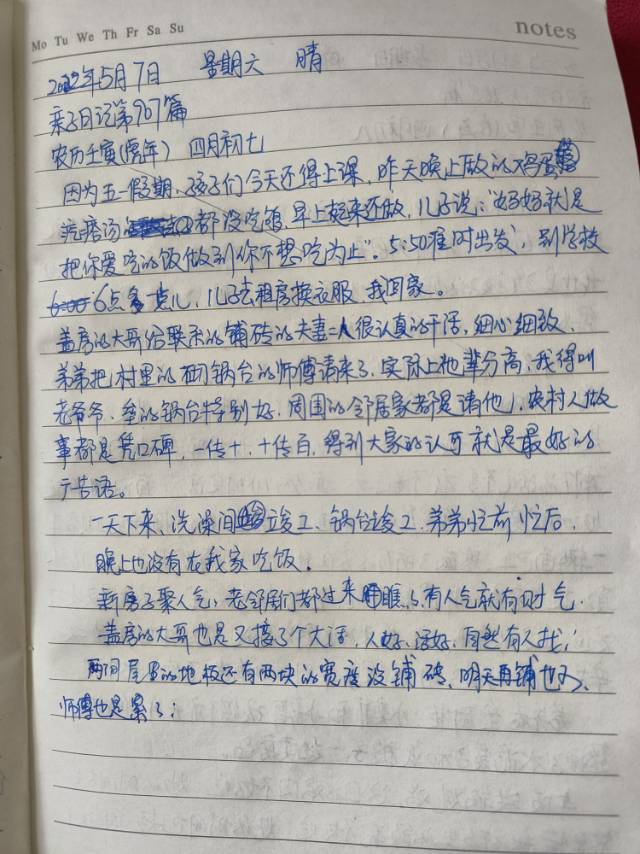 Mo Tu We Th Fr Sa Su
notes
2022年5月7日 星期六 晴
亲子日记第907篇
农历壬寅(虎年) 四月初七
因为五一假期,孩子们今天还得上课,昨天晚上做的鸡蛋
疙瘩汤都没吃短,早上起来还做,儿子说:"好好就是
把你爱吃的饭做到你不想吃为止"。5:50准时出发,到学校
6点多一点儿,儿子去租房换衣服,我回家。
盖房的大哥给联系的铺砖的夫妻二人很认真的干活,细心细致,
弟弟把村里的砌锅台的师傅请来了,实际上他辈分高,我得叫
老爷爷,垒的锅台特别好,周围的邻居家都是请他,农村人做
事都是凭口碑,一传十,十传百,得到大家的认可就是最好的
广告语。
一天下来、洗澡间竣工、锅台竣工、弟弟忙前忙后,
晚上也没有在我家吃饭。
新房子聚人气,老邻居们都过来瞧瞧,有人气就有财气,
盖房的大哥也是又接了个大活,人好、活好、自然有人找,
两间屋里的地板还有两块的宽度没铺砖,明天再铺也可,
师傅也是累了;